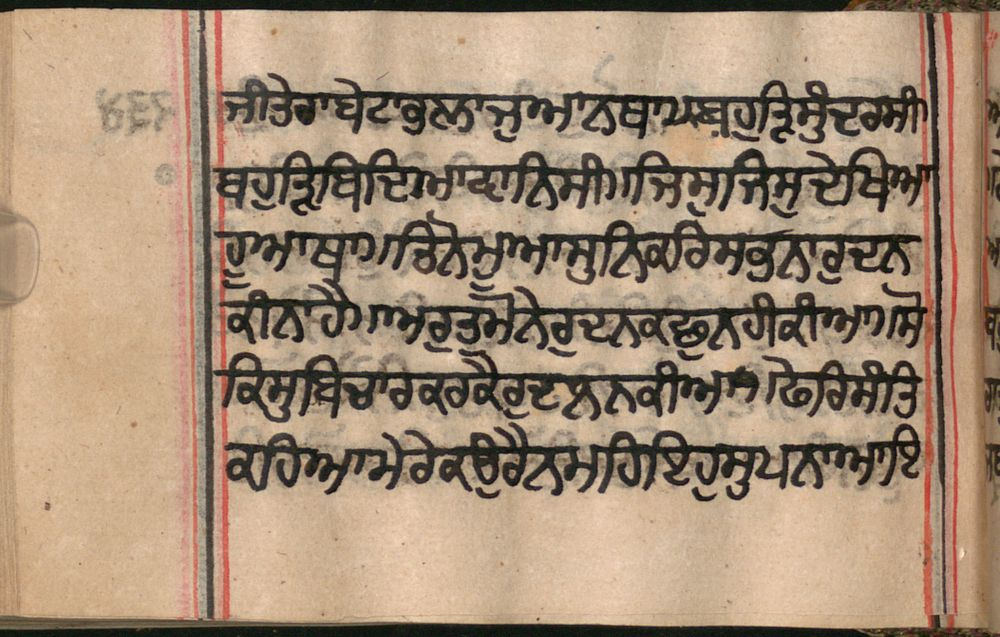 ਜੀਤੇਰਾ ਬੇਟਾ ਭਲਾ ਜੁਆਨ ਥਾ ਅਰ ਬਹੁਤੁ ਸੁੰਦਰ ਸੀ
ਬਹੁਤੁ ਬਿਦਿਆ ਵਾਨਿ ਸੀ॥ ਜਿਸੁ ਜਿਸੁ ਦੇਖਿਆ
ਹੁਆ ਥਾ॥ ਤਿਨੈ ਮੁਆ ਸੁਨਿ ਕਰਿ ਸਭਨਾ ਰੁਦਨ
ਕੀਨਾ ਹੈ॥ ਅਰੁ ਤੁਮੈ ਨੇ ਰੁਦਨ ਕਛੁ ਨਹੀ ਕੀਆ॥ ਸੋ
ਕਿਸੁ ਬਿਚਾਰ ਕਰਕੈ ਰੁਦਨ ਨ ਕੀਆ॥ ਫੇਰਿ ਸੰਤਿ
ਕਹਿਆ ਮੇਰੇ ਕਉ ਰੈਨ ਮਹਿ ਇਹੁ ਸੁਪਨਾ ਆਇ